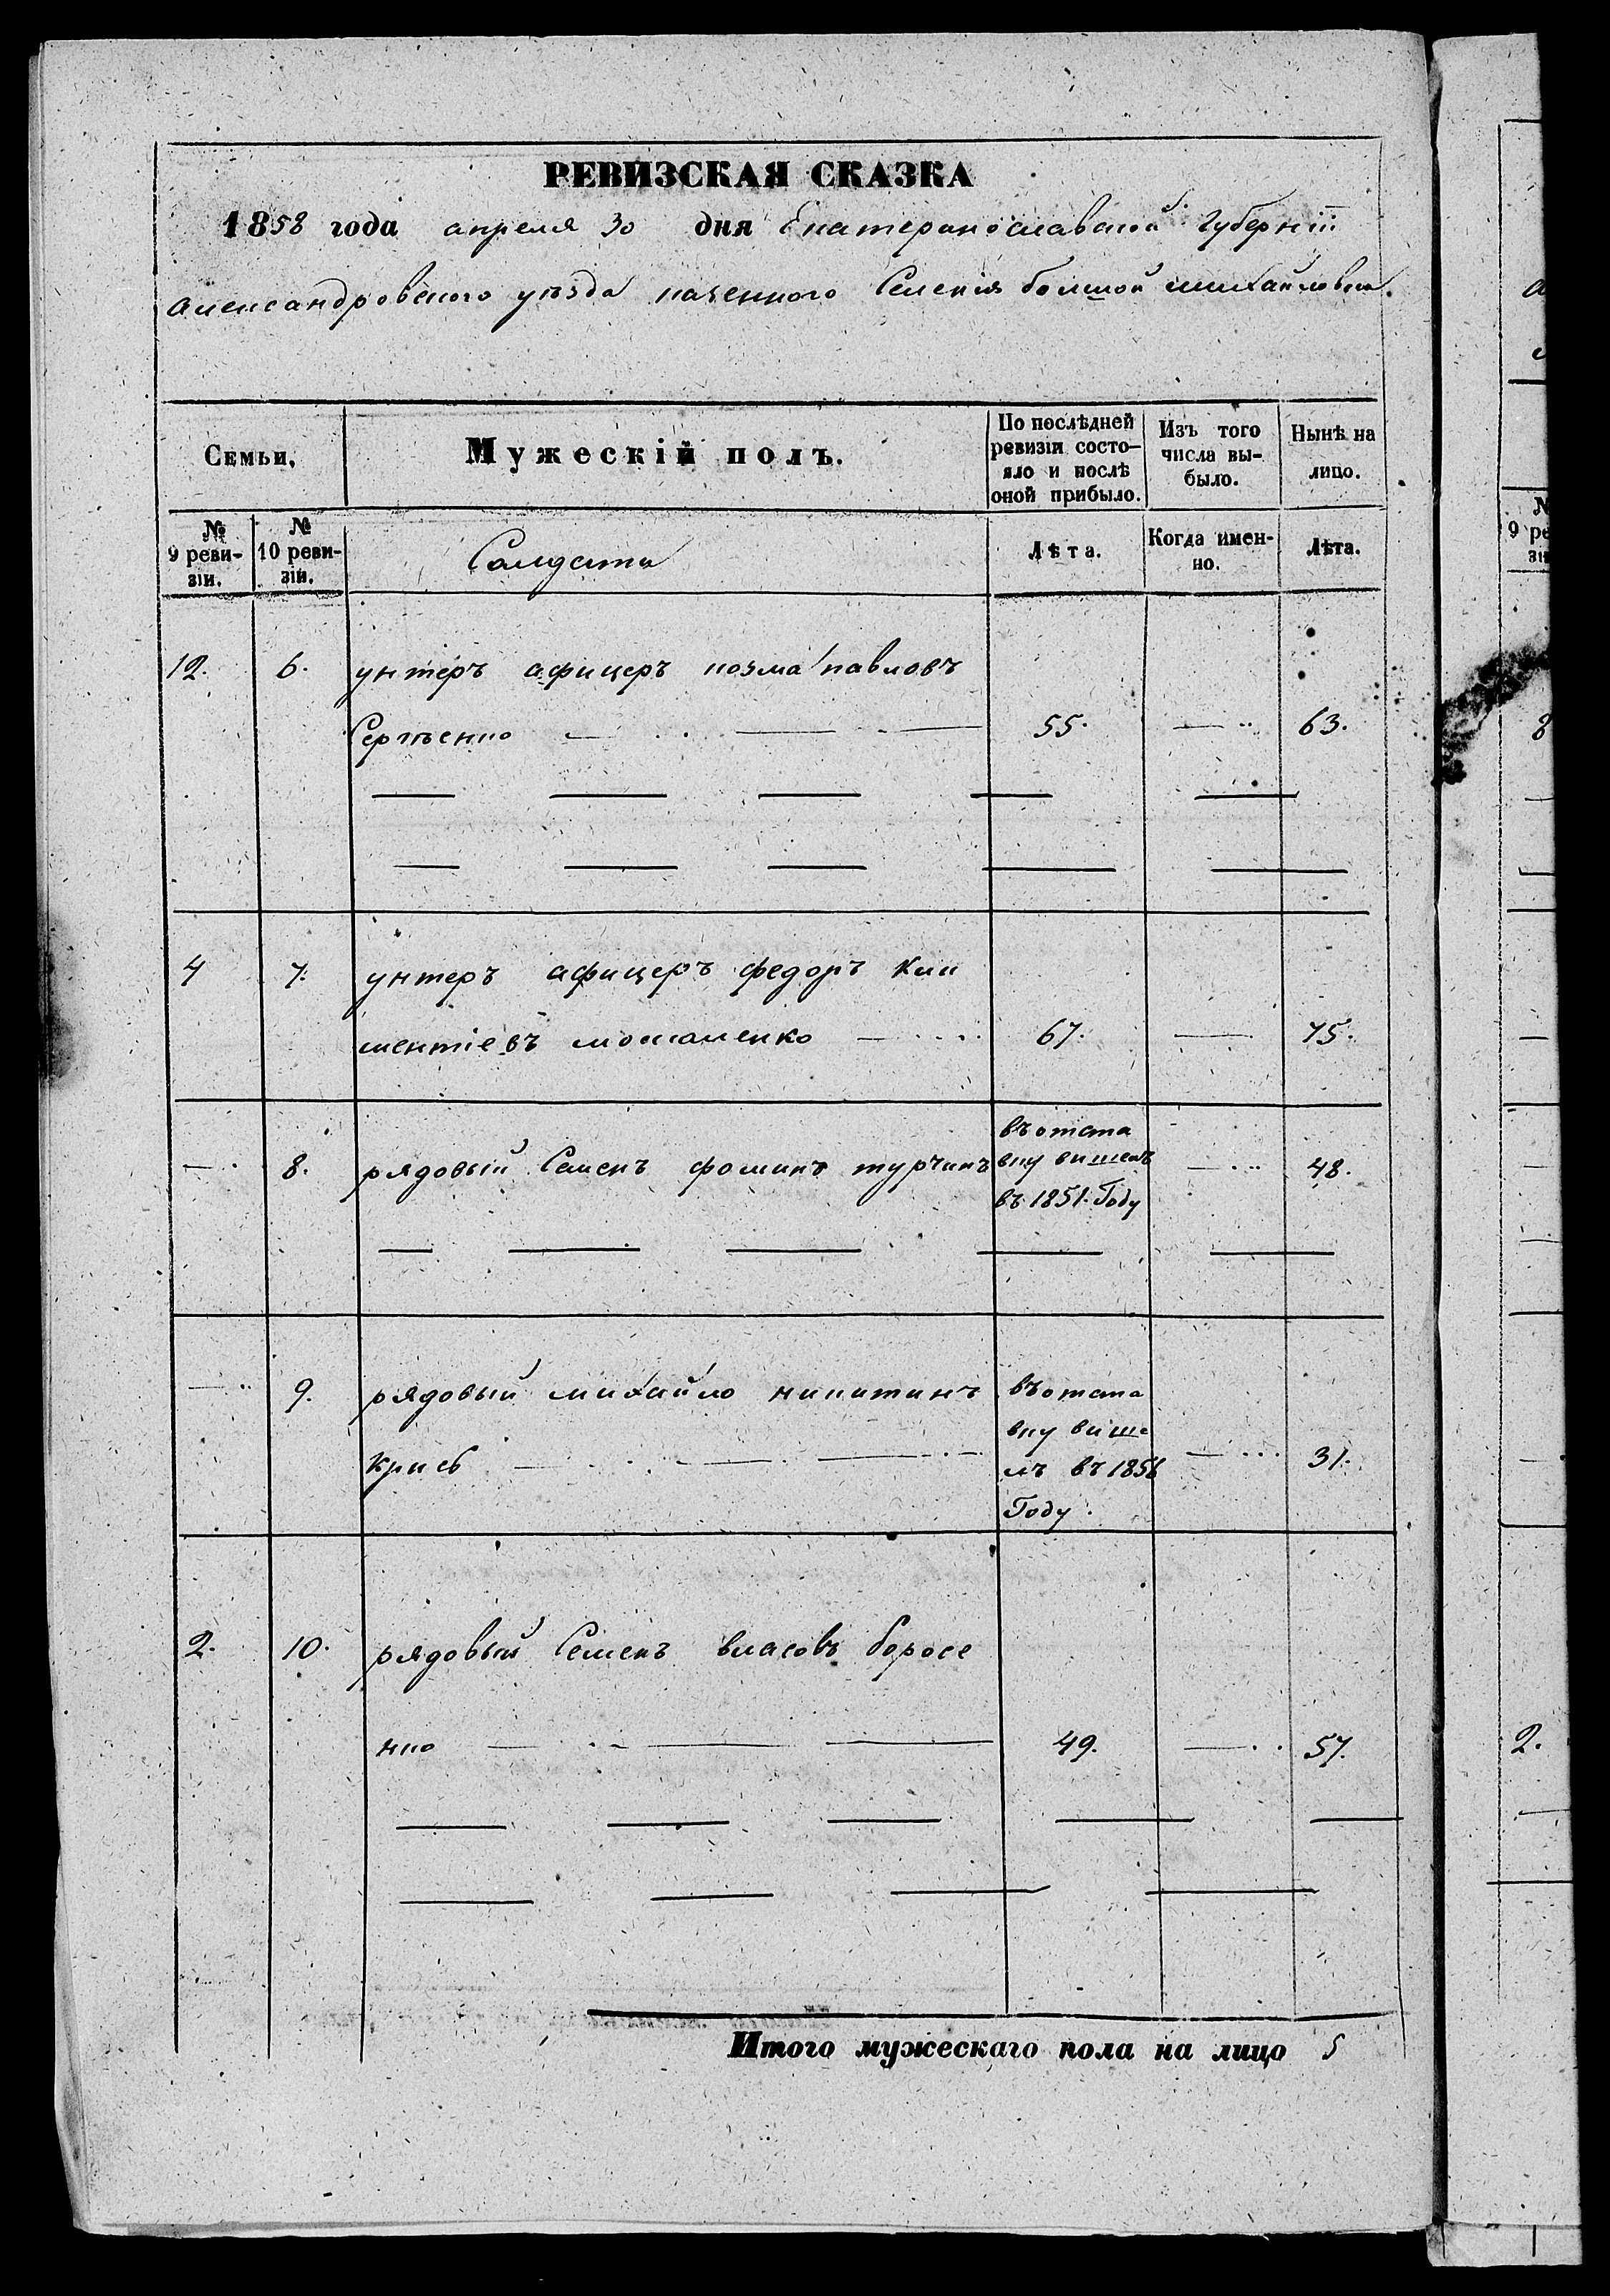 РЕВИЗСКАЯ СКАЗКА
1858 года апреля 30 дня Екатеринославской Губернiи
александровского уезда казенного Селения большой михайловки
Семьи, Мужескiй полъ. По послѣдней ревизiи состо- яло и послѣ оной прибыло. Изъ того числа вы- было. Нынѣ на лицо.
№ 9 реви- зiи. № 10 реви- зiи. Солдаты Лѣта. Когда имен- но. Лѣта.
12. 6. унтеръ афицеръ козма павловъ
Сергѣенко 55. 63.
4 7. унтеръ афицеръ федоръ кли
ментiевъ москаленко 67. 75.
въ отста
8. рядовый Семенъ фоминъ турчинъ вку вишелъ 48.
въ 1851. Году
9. рядовый михайло никитинъ въ отста
вку више
Крись лъ въ 1856 31.
Году.
2. 10. рядовый Семенъ власовъ боросе
нко 49. 57.
Итого мужескаго пола на лицо 5
№
9 ре
зiи
8
2.